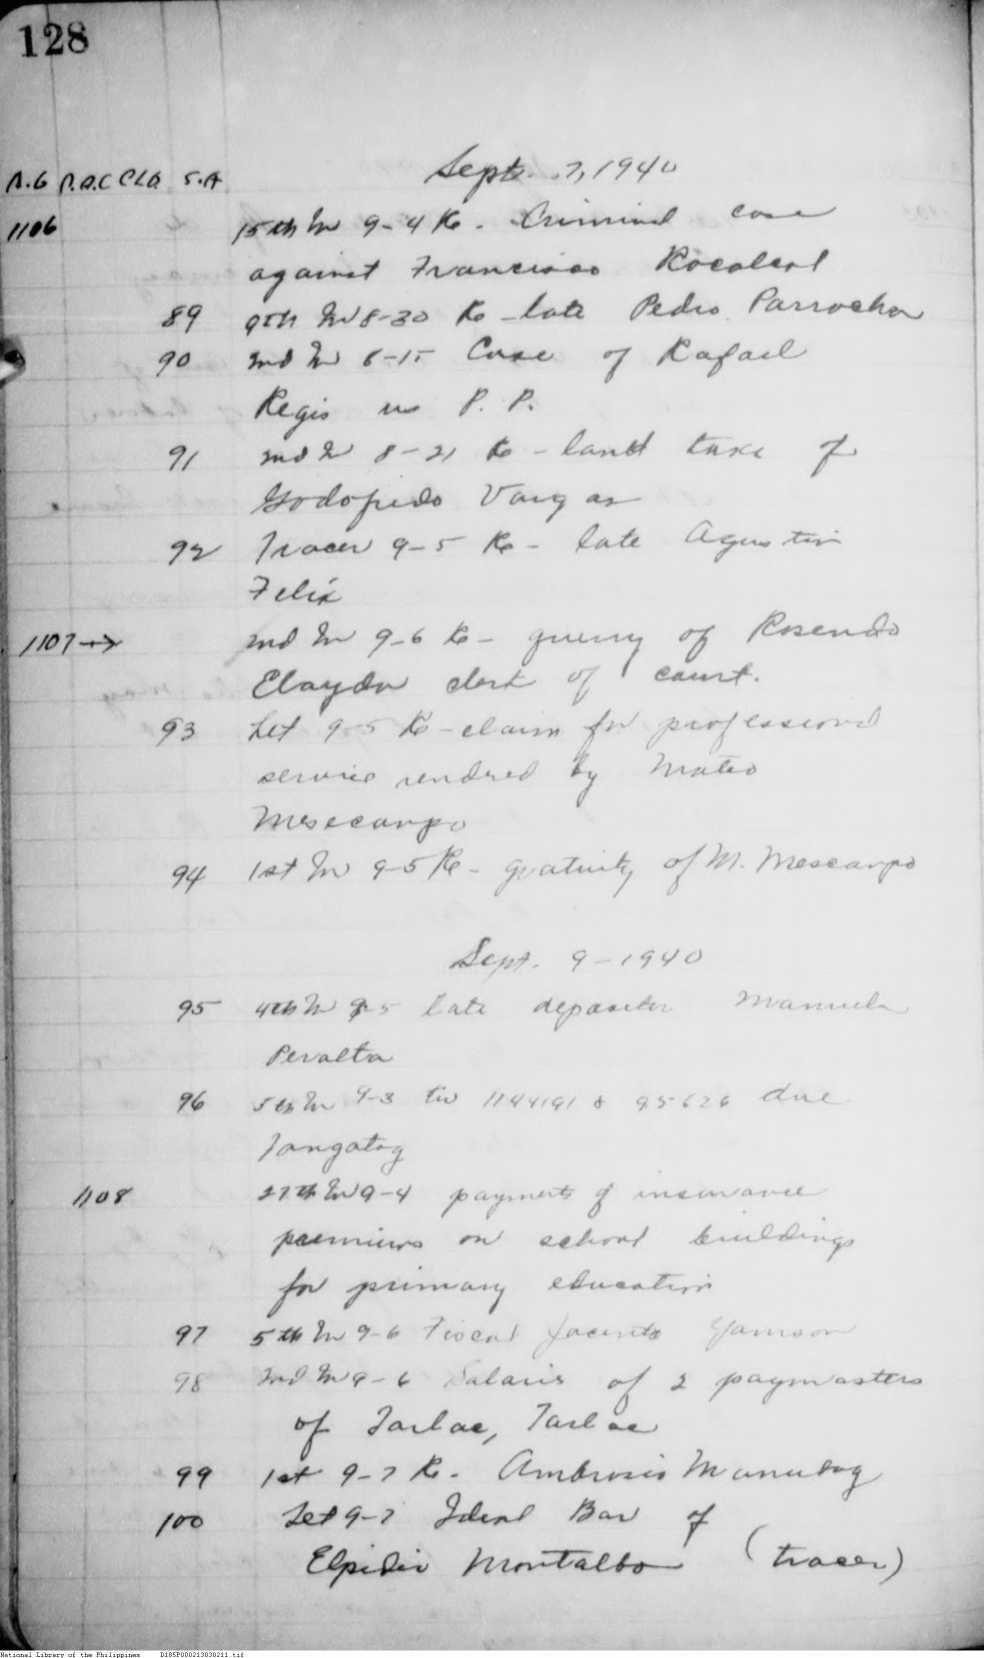 128
Sept. 7, 1940
A.G P.A.C CLD S.A
1106 15th In 9-4 Re - Criminal case
against Francisco Rocabert
89 9th In 8-30 Re - late Pedro Parrocha
90 2nd In 8-15 Case of Rafael
Regis vs P. P.
91 2nd In 8-21 Re - land taxe of
Godofredo Vargas
92 Tracer 9-5 Re - late Agustin
Felix
1107 → 2nd In 9-6 Re - querry of Rosendo
Elayda clerk of court.
93 Let 9-5 Re - claim for professional
service rendred by Mateo
Mesecarpo
94 1st In 9-5 Re - gratuity of M. Mescarpo
Sept. 9-1940
95 4th In 9-5 late depositor Manuela
Peralta
96 5th In 9-3 tw 1144191 & 95626 due
Tangatag
1108 27th In 9-4 payments of insurance
premiums on school buildings
for primary education
97 5th In 9-6 Fiscal Jacinto Yamson
98 2nd In 9-6 Salaris of 2 paymasters
of Tarlac, Tarlac
99 1st 9-7 Re - Ambrosio Manubag
100 Let 9-7 Ideal Bar of
Elpidio Montalbo (tracer)
National Library of the Philippines D185P000213030211.tif